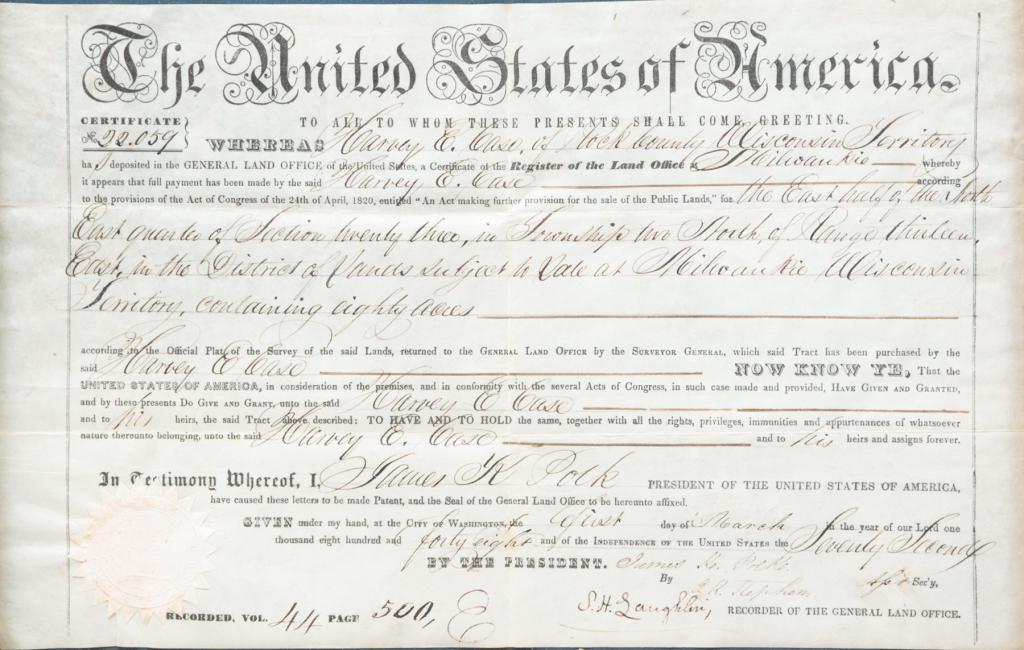 The United States of America.
CERTIFICATE
No. 22.059
TO ALL TO WHOM THESE PRESENTS SHALL COME, GREETING.
WHEREAS Harvey E. Case, of Rock County Wisconsin Territory
ha s deposited in the GENERAL LAND OFFICE of the United States, a Certificate of the Register of the Land Office at Milwaukie whereby
it appears that full payment has been made by the said Harvey E. Case according
to the provisions of the Act of Congress of the 24th of April, 1820, entitled "An Act making further provision for the sale of the Public Lands," for the East half of the North
East quarter of Section twenty three, in Township two North, of Range thirteen,
East, in the District of Lands subject to Sale at Milwaukie Wisconsin
Territory, containing eighty acres
according to the Official Plat of the Survey of the said Lands, returned to the GENERAL LAND OFFICE by the SURVEYOR GENERAL, which said Tract has been purchased by the
said Harvey E Case NOW KNOW YE, That the
UNITED STATES OF AMERICA, in consideration of the premises, and in conformity with the several Acts of Congress, in such case made and provided, HAVE GIVEN AND GRANTED,
and by these presents DO GIVE AND GRANT, unto the said Harvey E Case
and to his heirs, the said Tract above described: TO HAVE AND TO HOLD the same, together with all the rights, privileges, immunities and appurtenances of whatsoever
nature thereunto belonging, unto the said Harvey E. Case and to his heirs and assigns forever.
In Testimony Whereof, I, James K Polk PRESIDENT OF THE UNITED STATES OF AMERICA,
have caused these letters to be made Patent, and the Seal of the General Land Office to be hereunto affixed.
GIVEN under my hand, at the CITY OF WASHINGTON, the first day of March in the year of our Lord one
thousand eight hundred and forty eight and of the INDEPENDENCE OF THE UNITED STATES the Seventy Second
BY THE PRESIDENT. James K. Polk
By Sec'y.
S. H. Laughlin, RECORDER OF THE GENERAL LAND OFFICE.
RECORDED, VOL. 44 PAGE 500, E